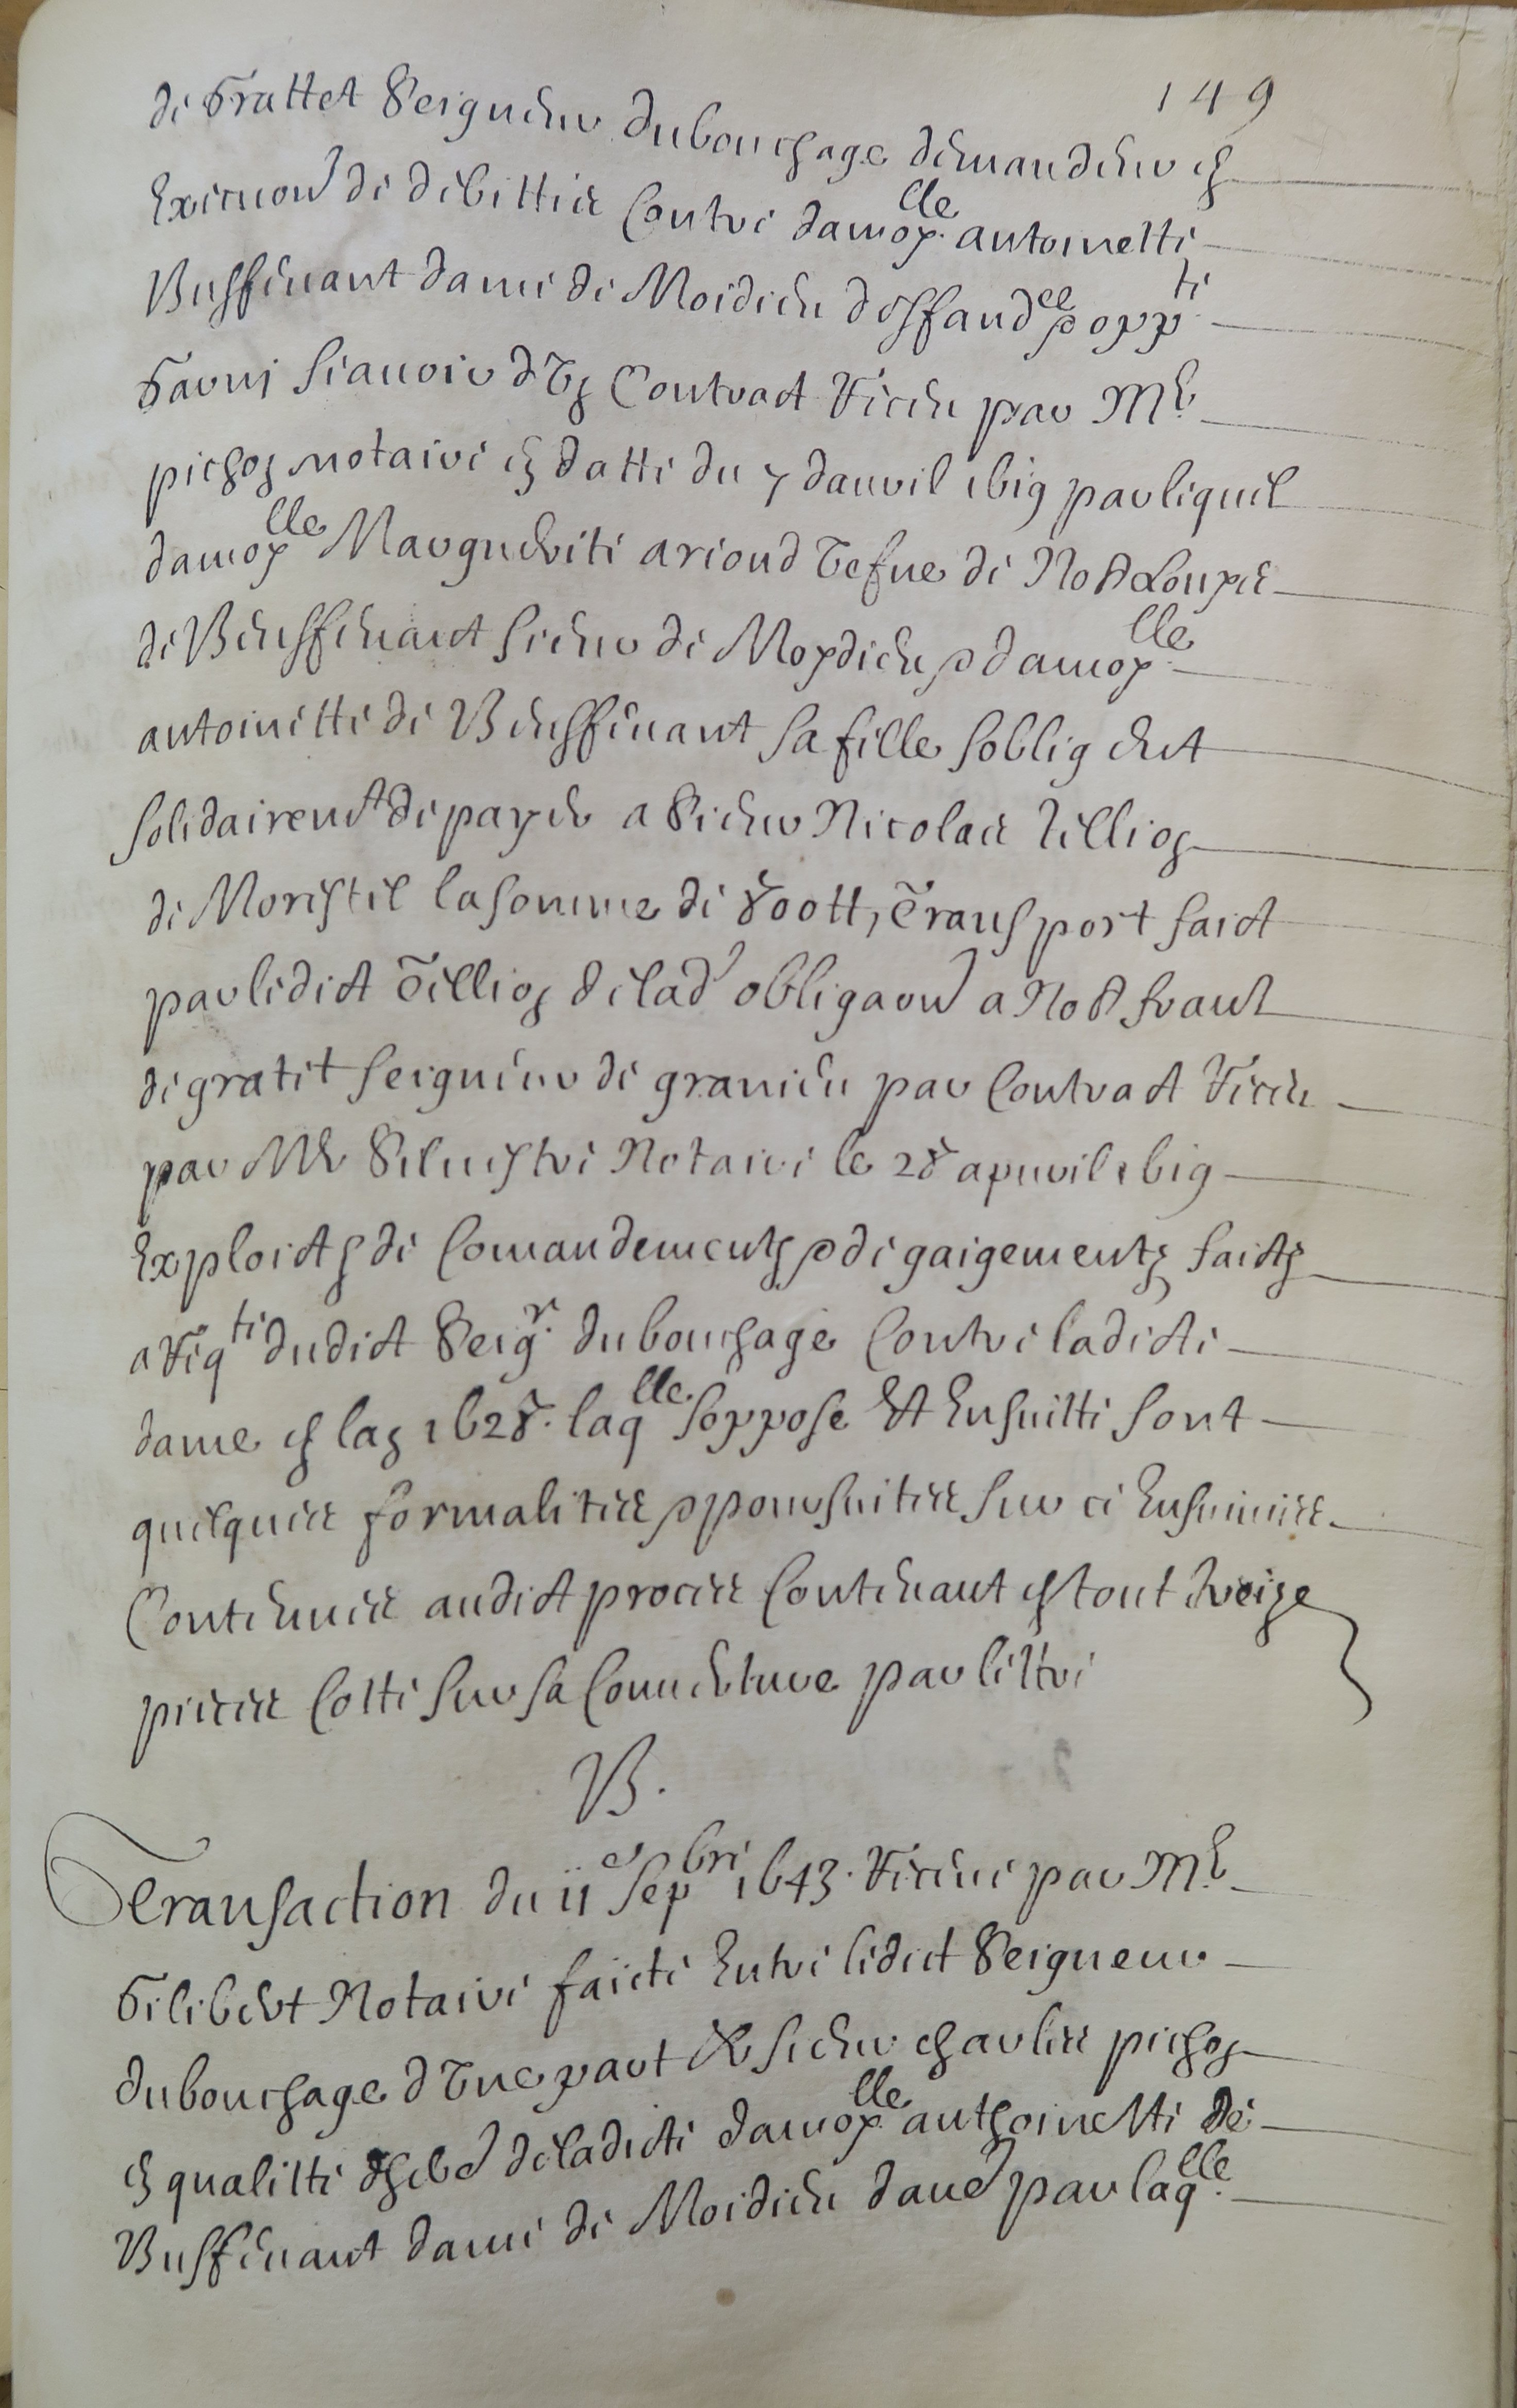 149
de Grattet Seigneur du bouchage demandeur en
Execuon de debittes Contre damoy.lle antoinette
Buffevant dame de Moidieu deffand.ee & opp.te
Garni scavoir d'un Contract Receu par Me
pichon notaire en datte du 7 d'avril 1619 par lequel
damoy.lle Marguerite arioud vefve de Not Louys
de Beuffevant sieur de Moydieu & damoy.lle
antoinette de Beuffevant sa fille s'obligent
solidairemt de payer a Sieur Nicolas Tillion
de Morestel la somme de 800 tt, Transport faict
par ledict Tillion de lad. obligaon a Not franc
de gratet seigneur de granieu par Contract Receu
par Me Silvestre Notaire le 28 apvril 1619
Exploicts de Comandements & de gaigements faicts
a Req.te dudict Seig.r du bouchage Contre ladicte
dame en lan 1628. laq.lle s'oppose Et Ensuitte sont
quelques formalites & poursuites sur ce Ensuivies
Contenues audict proces Contenant en tout treize
pieces Cotté sur sa Couverture par lettre
B.
Transaction du 11e Sep.bre 1643. Receue par Me
Gilibert Notaire faicte Entre ledict Seigneur
du bouchage d'une part & sieur charles pichon
en qualitte d'her.r de ladicte damoy.lle anthoinette de
Buffevant dame de Moidieu d'au.e par laq.lle